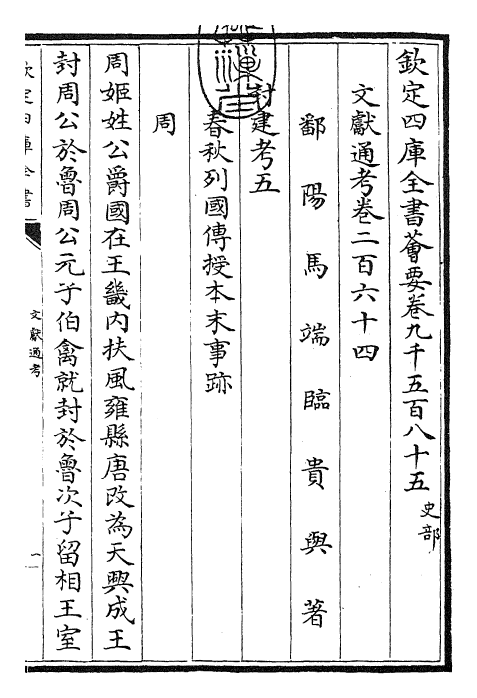 欽定四庫全書薈要卷九千五百八十五 史部
文獻通考卷二百六十四
鄱陽馬端臨貴與著
封建考五
春秋列國傳授本末事跡
周
周姬姓公爵國在王畿內扶風雍縣唐改為天興成王
封周公於魯周公元子伯禽就封於魯次子留相王室
欽定四庫全書
文獻通考
一